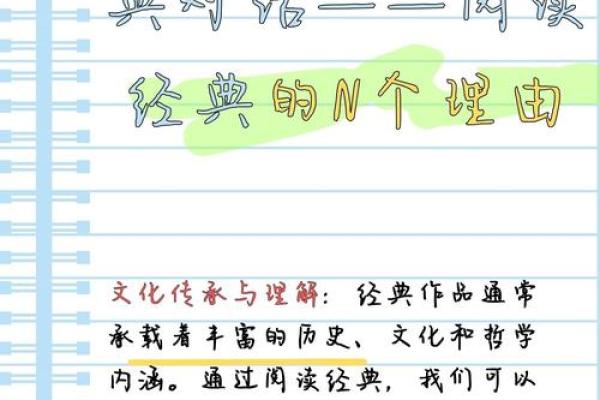 典对话——阅读
经典的N个理由
文化传承与理解：经典作品通常
承载着丰富的历史、文化和哲学
内涵。通过阅读经典，我们可以